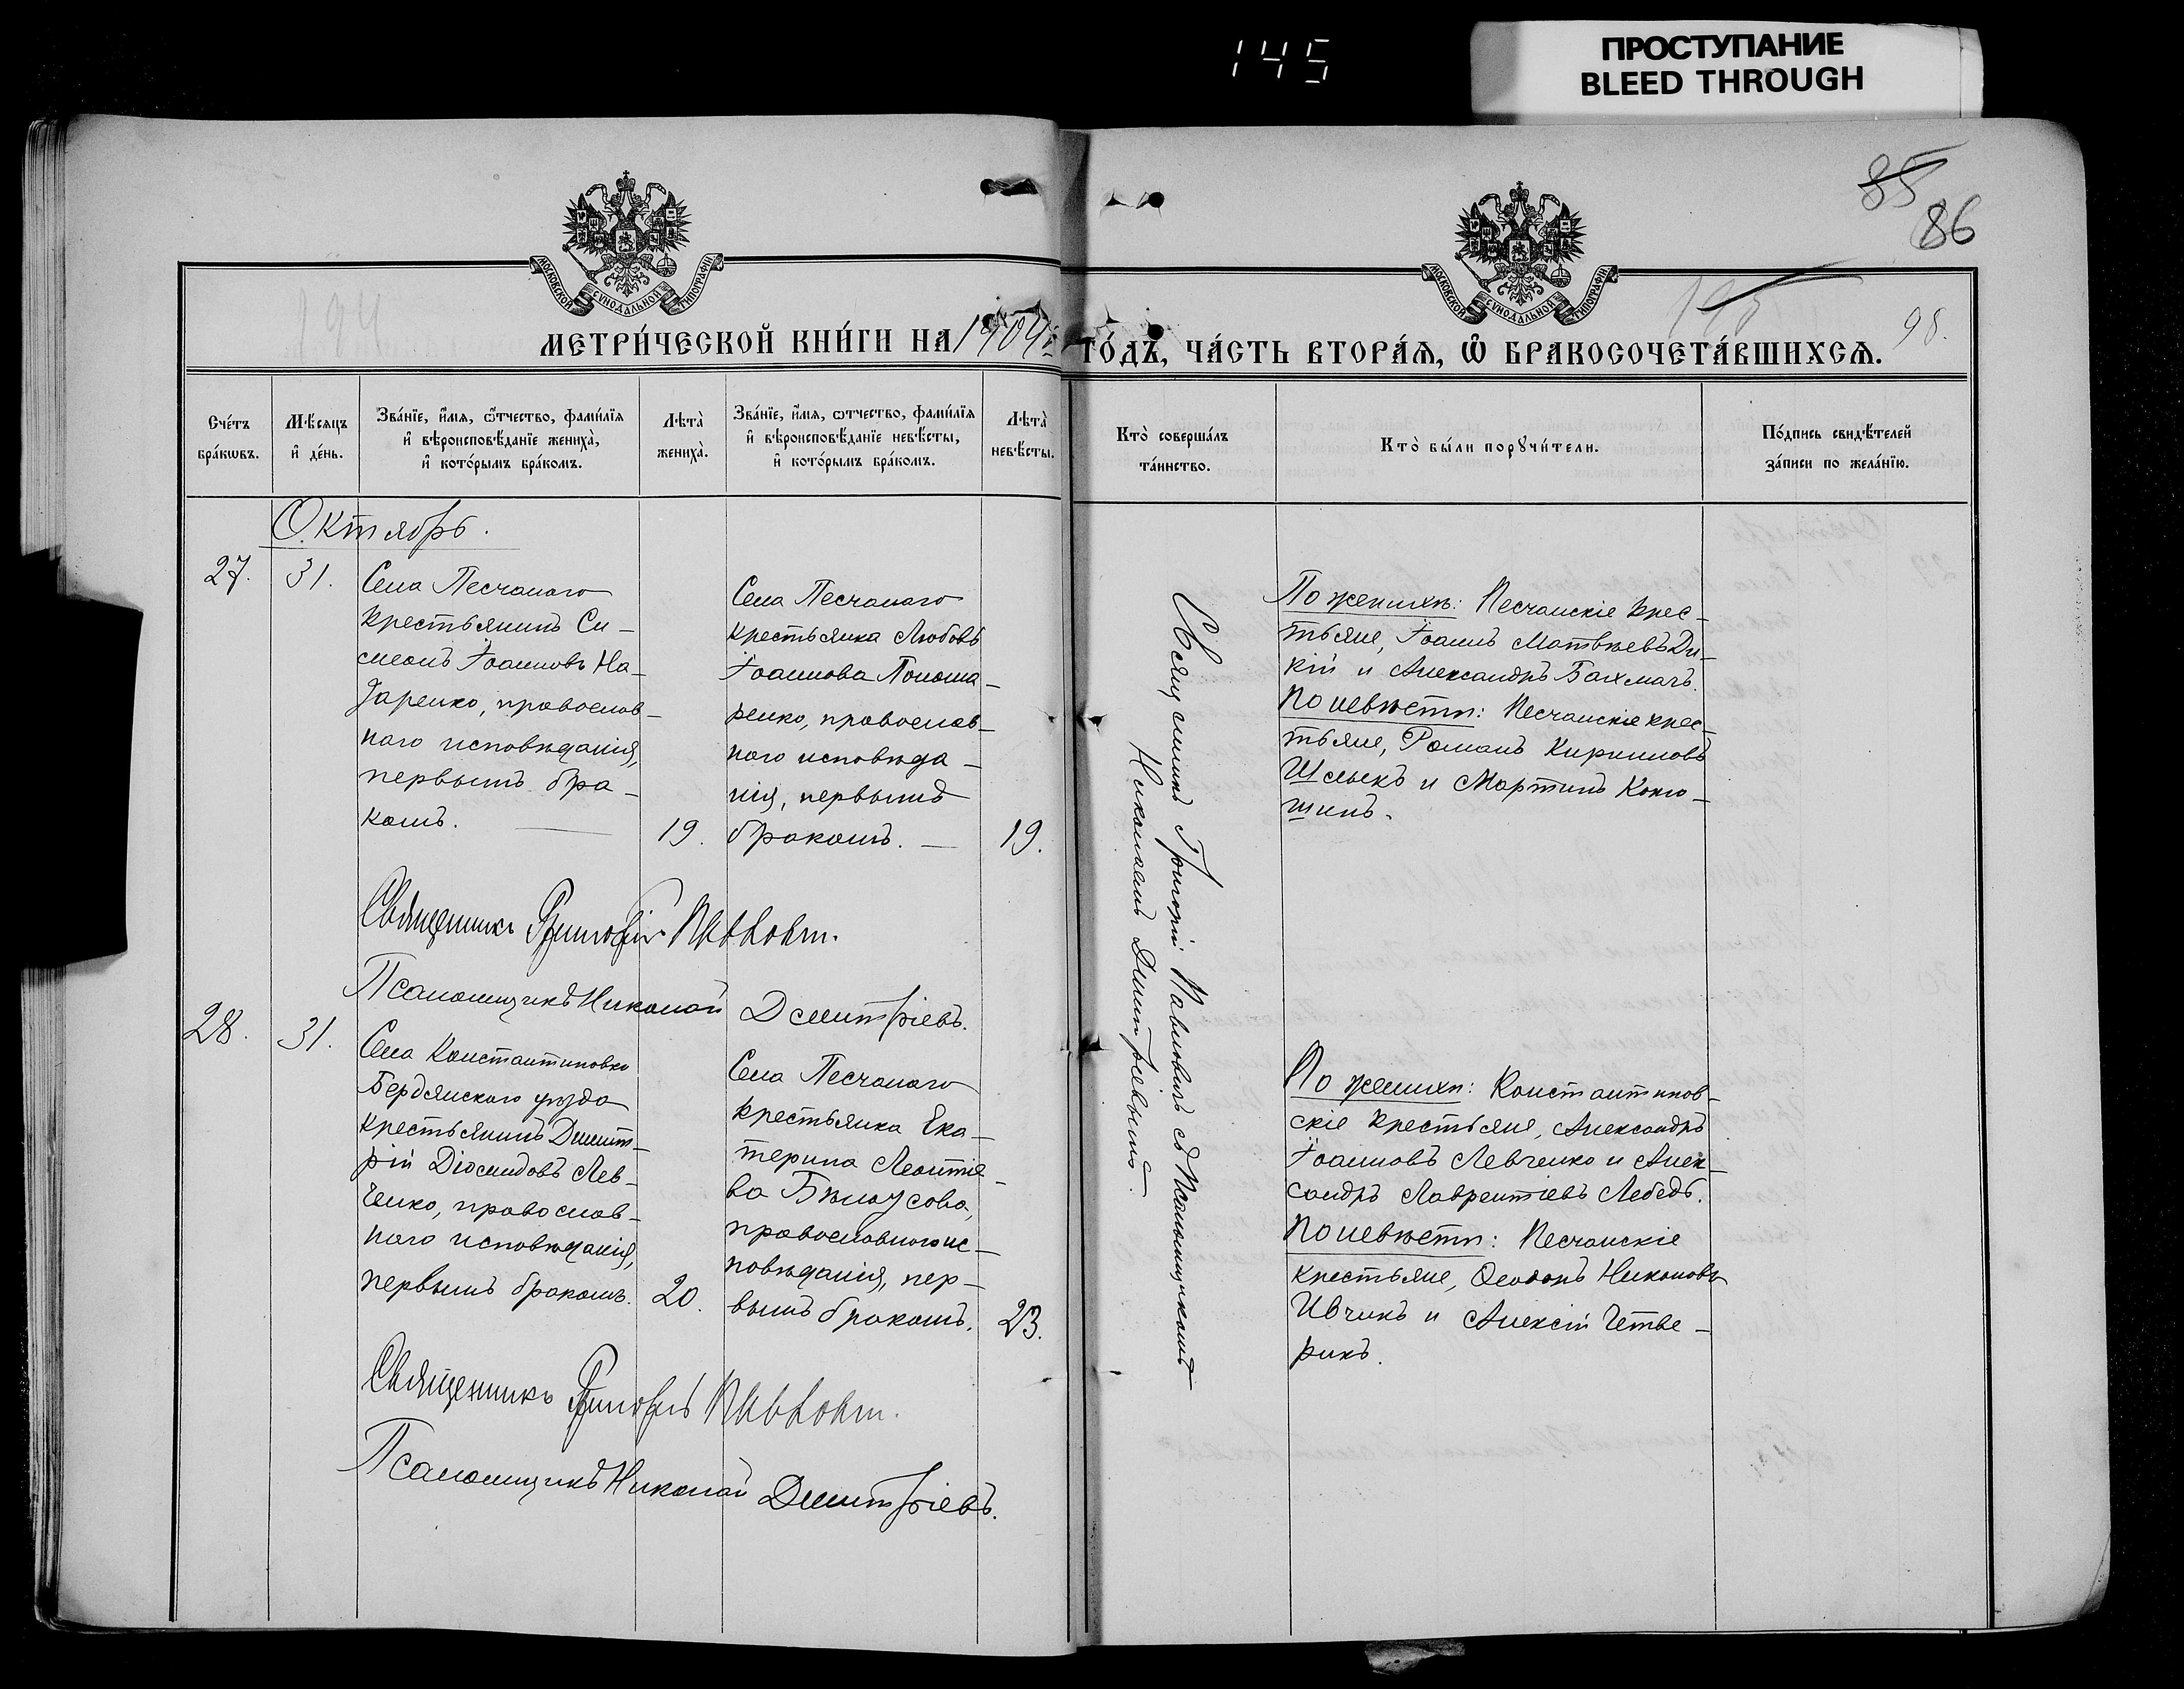 145
ПРОСТУПАНИЕ
BLEED THROUGH
85
86
194
98.
МОСКОВСКОЙ СУНОДАЛЬНОЙ ТИПОГРАФІИ
МОСКОВСКОЙ СУНОДАЛЬНОЙ ТИПОГРАФІИ
МЕТРИ́ЧЕСКОЙ КНИ́ГИ НА 1904й ГО́ДЪ, ЧА́СТЬ ВТОРА́Я, Ѽ БРАКОСОЧЕТА́ВШИХСЯ.
Сче́тъ
бра́кωвъ.
Мѣ́сяцъ
и҆ де́нь.
Зва́нїе, и҆́мя, ѻ҆́тчество, фами́лїя
и҆ вѣроисповѣ́данїе жениха̀,
и҆ кото́рымъ бра́комъ.
Лѣта̀
жениха̀.
Зва́нїе, и҆́мя, ѻ҆́тчество, фами́лїя
и҆ вѣроисповѣ́данїе невѣ́сты,
и҆ кото́рымъ бра́комъ.
Лѣта̀
невѣ́сты.
Кто̀ соверша́лъ
та́инство.
Кто̀ бы́ли порꙋчи́тели.
По́дпись свидѣ́телей
за́писи по жела́нїю.
Октябрь.
27.
31.
Села Песчанаго
крестьянинъ Си-
меонъ Іоанновъ На-
заренко, православ-
наго исповѣданія,
первымъ бра-
комъ.
19.
Села Песчанаго
крестьянка Любовь
Іоаннова Понома-
ренко, православ-
наго исповѣда-
нія, первымъ
бракомъ.
19.
Священникъ Григорій Павловичъ съ Псаломщикомъ
Николаемъ Димитріевымъ.
По женихѣ: Песчанскіе крес-
тьяне, Іоаннъ Матвѣевъ Ди-
кій и Александръ Бахмачъ.
По невѣстѣ: Песчанскіе крес-
тьяне, Романъ Кирилловъ
Шлыкъ и Мартинъ Коню-
шинъ.
Священникъ Григорій
Псаломщикъ Николай Дмитріевъ.
28.
31.
Села Константиновки
Бердянскаго уѣзда
крестьянинъ Димит-
рій Діомидовъ Лев-
ченко, православ-
наго исповѣданія,
первымъ бракомъ.
20.
Села Песчанаго
крестьянка Ека-
терина Леонтіе-
ва Бѣлоусова,
православнаго ис-
повѣданія, пер-
вымъ бракомъ.
23.
По женихѣ: Константинов-
скіе крестьяне, Александръ
Іоанновъ Левченко и Алек-
сандръ Лаврентіевъ Лебедь.
По невѣстѣ: Песчанскіе
крестьяне, Ѳеодоръ Никоновъ
Ивчикъ и Алексій Четве-
рикъ.
Священникъ Григорій
Псаломщикъ Николай Димитріевъ.